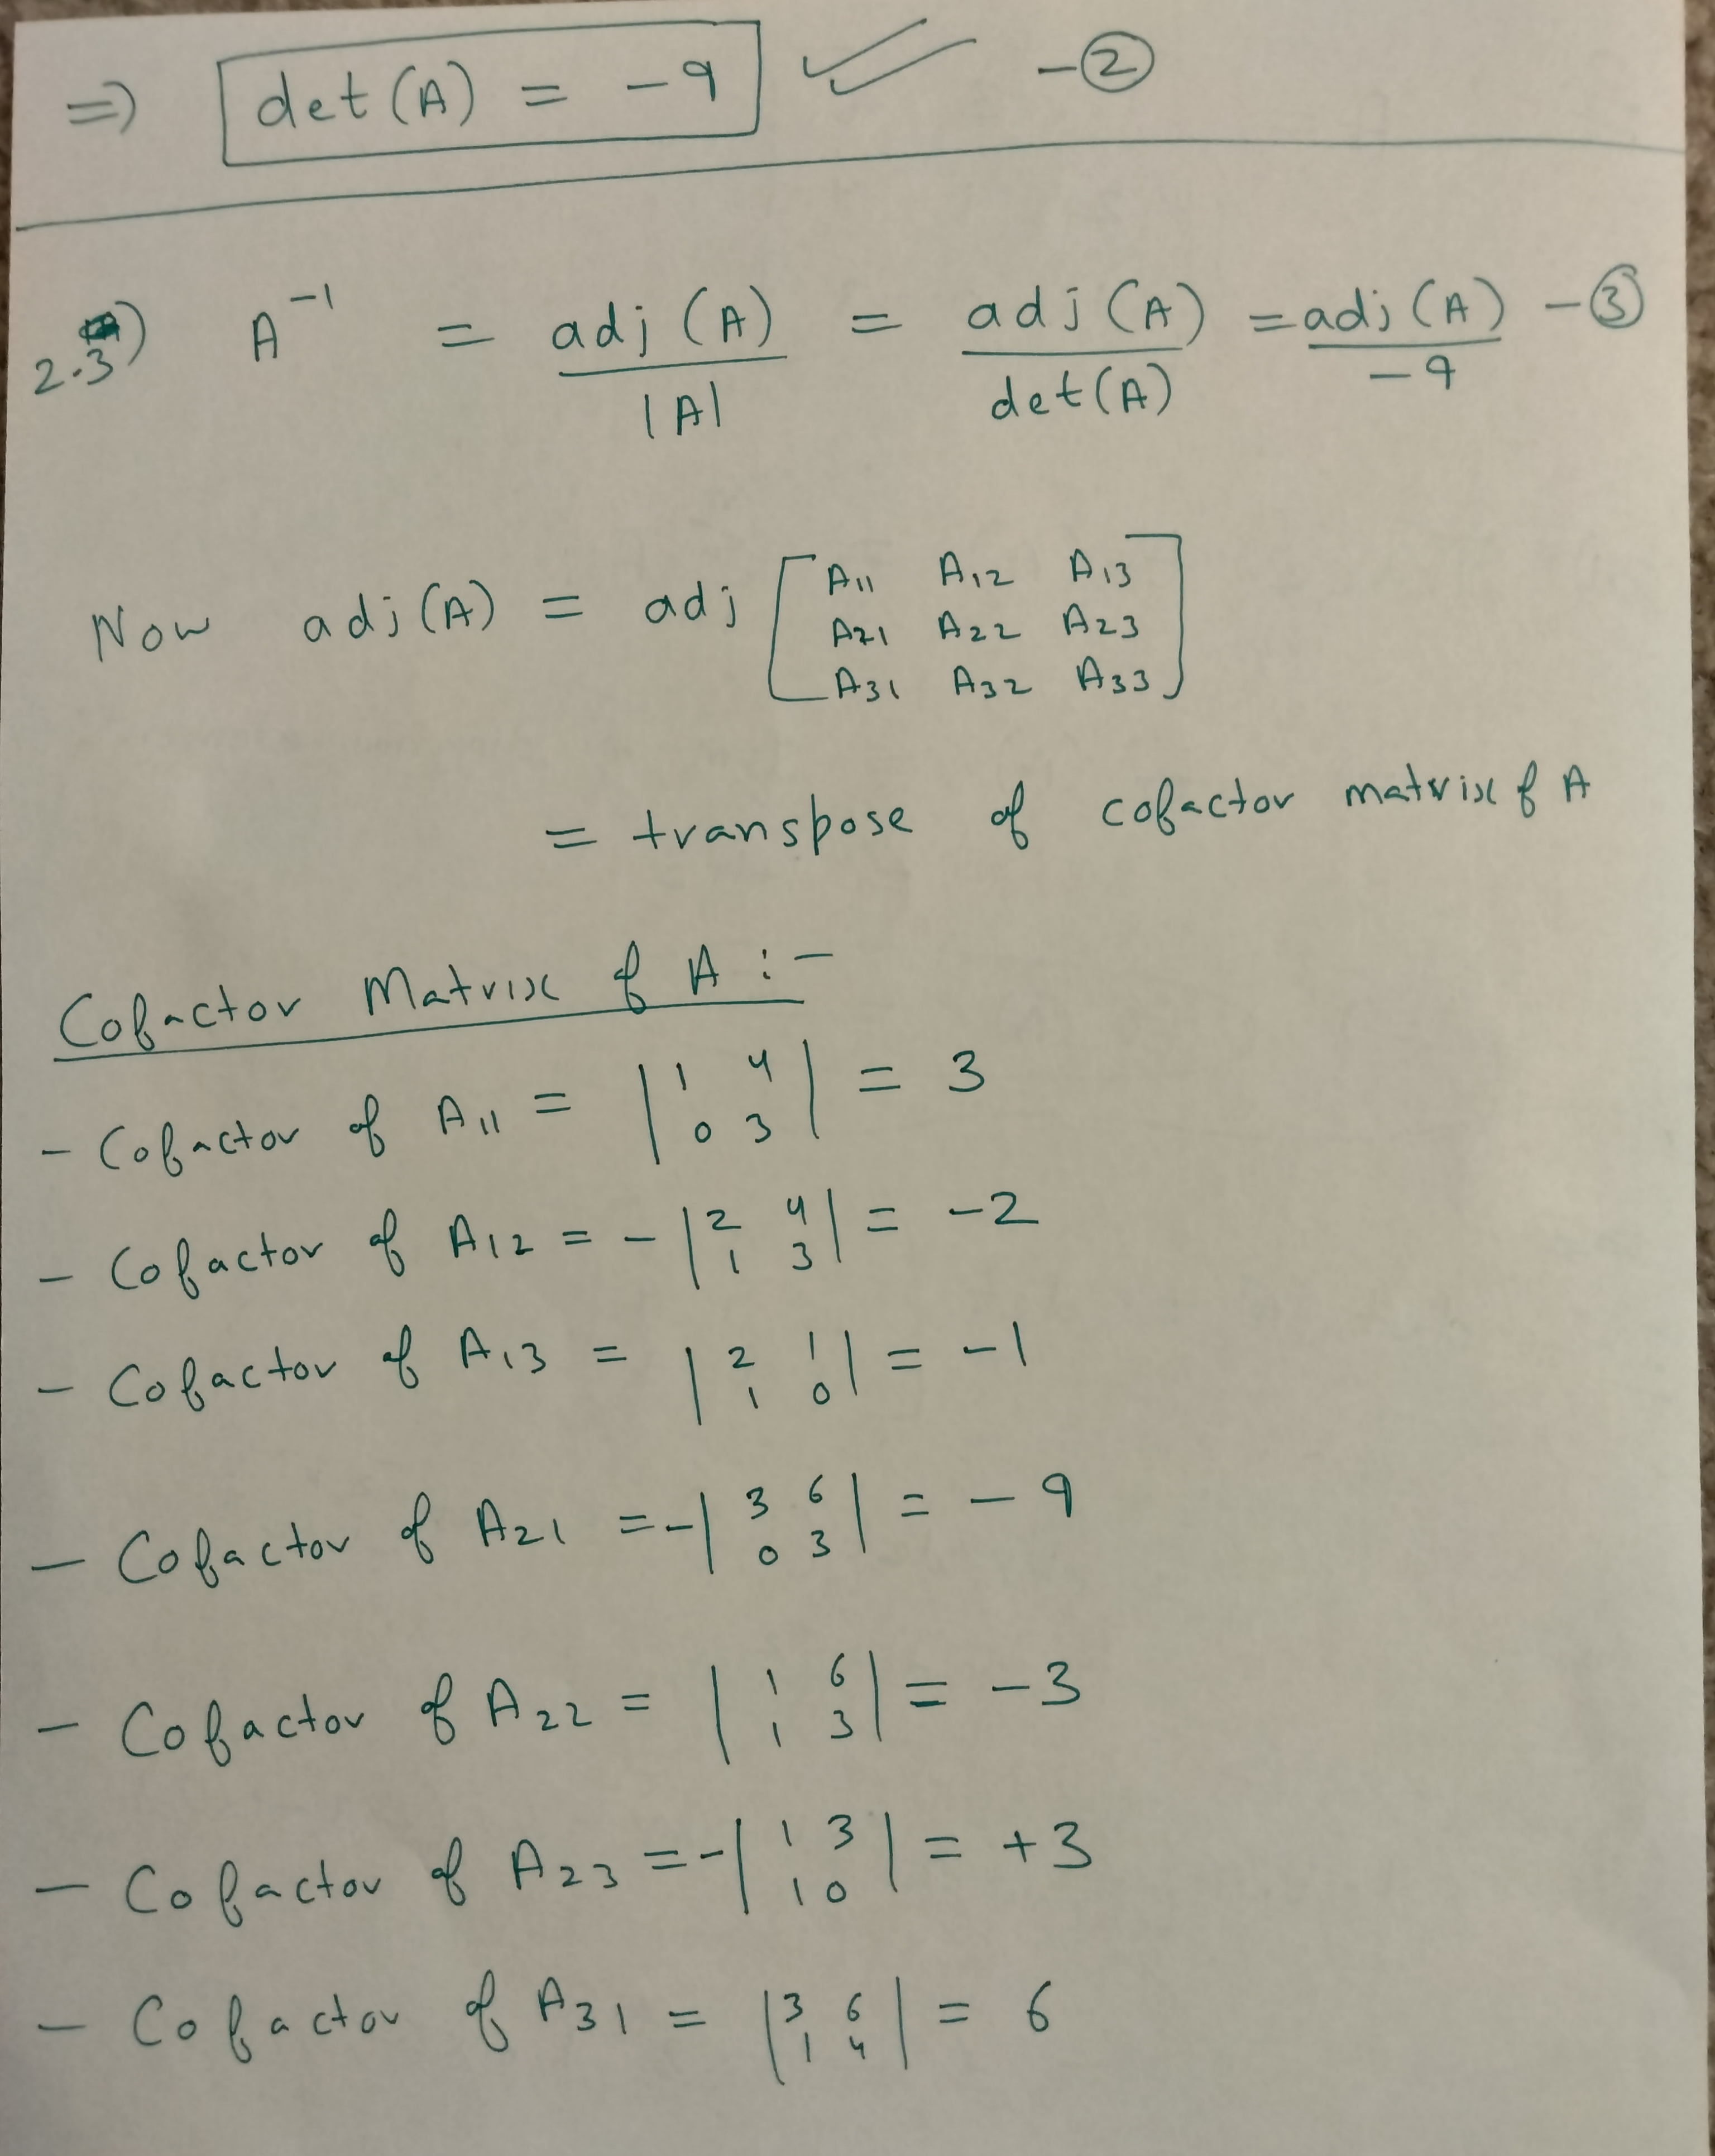 => det(A) = -9 ✓✓ -②
2.3) A⁻¹ = adj(A)/|A| = adj(A)/det(A) = adj(A)/-9 -③
Now adj(A) = adj [A11 A12 A13
A21 A22 A23
A31 A32 A33]
= transpose of cofactor matrix of A
Cofactor Matrix of A :-
- Cofactor of A11 = |1 4 / 0 3| = 3
- Cofactor of A12 = -|2 4 / 1 3| = -2
- Cofactor of A13 = |2 1 / 1 0| = -1
- Cofactor of A21 = -|3 6 / 0 3| = -9
- Cofactor of A22 = |1 6 / 1 3| = -3
- Cofactor of A23 = -|1 3 / 1 0| = +3
- Cofactor of A31 = |3 6 / 1 4| = 6